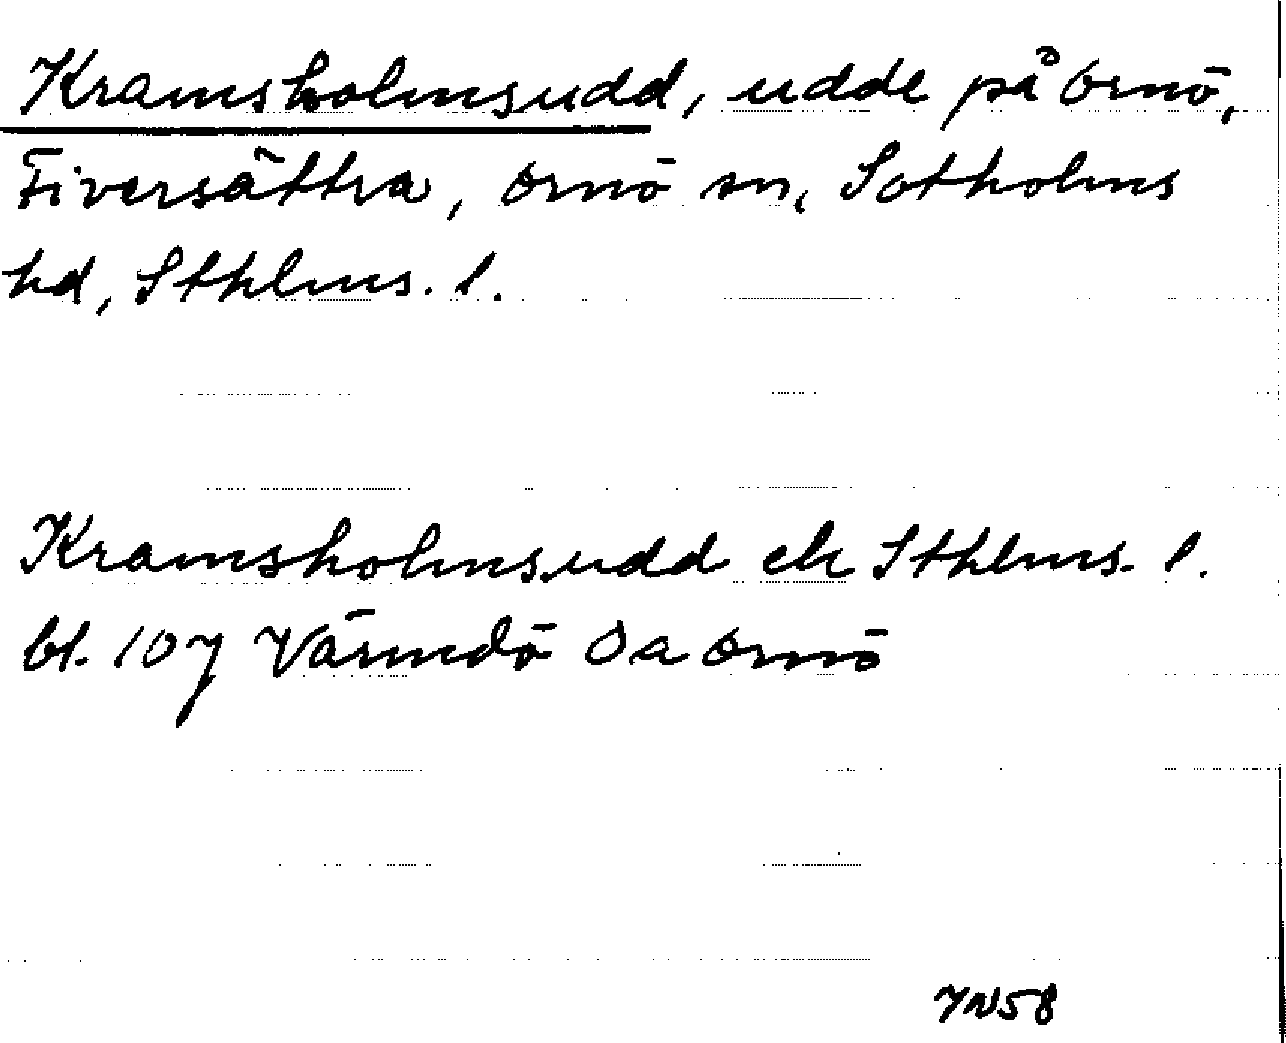 Kramsholmsudd, udde på Ornö,
Fiversättra, Ornö sn, Sotholms
hd, Sthlms. l.
Kramsholmsudd ek Sthlms. l.
bl. 107 Värmdö Sa Ornö
YN58